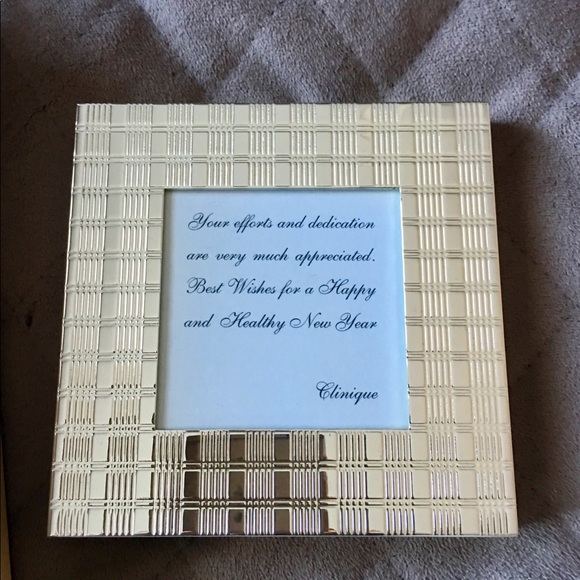 Your efforts and dedication
are very much appreciated.
Best Wishes for a Happy
and Healthy New Year
Clinique